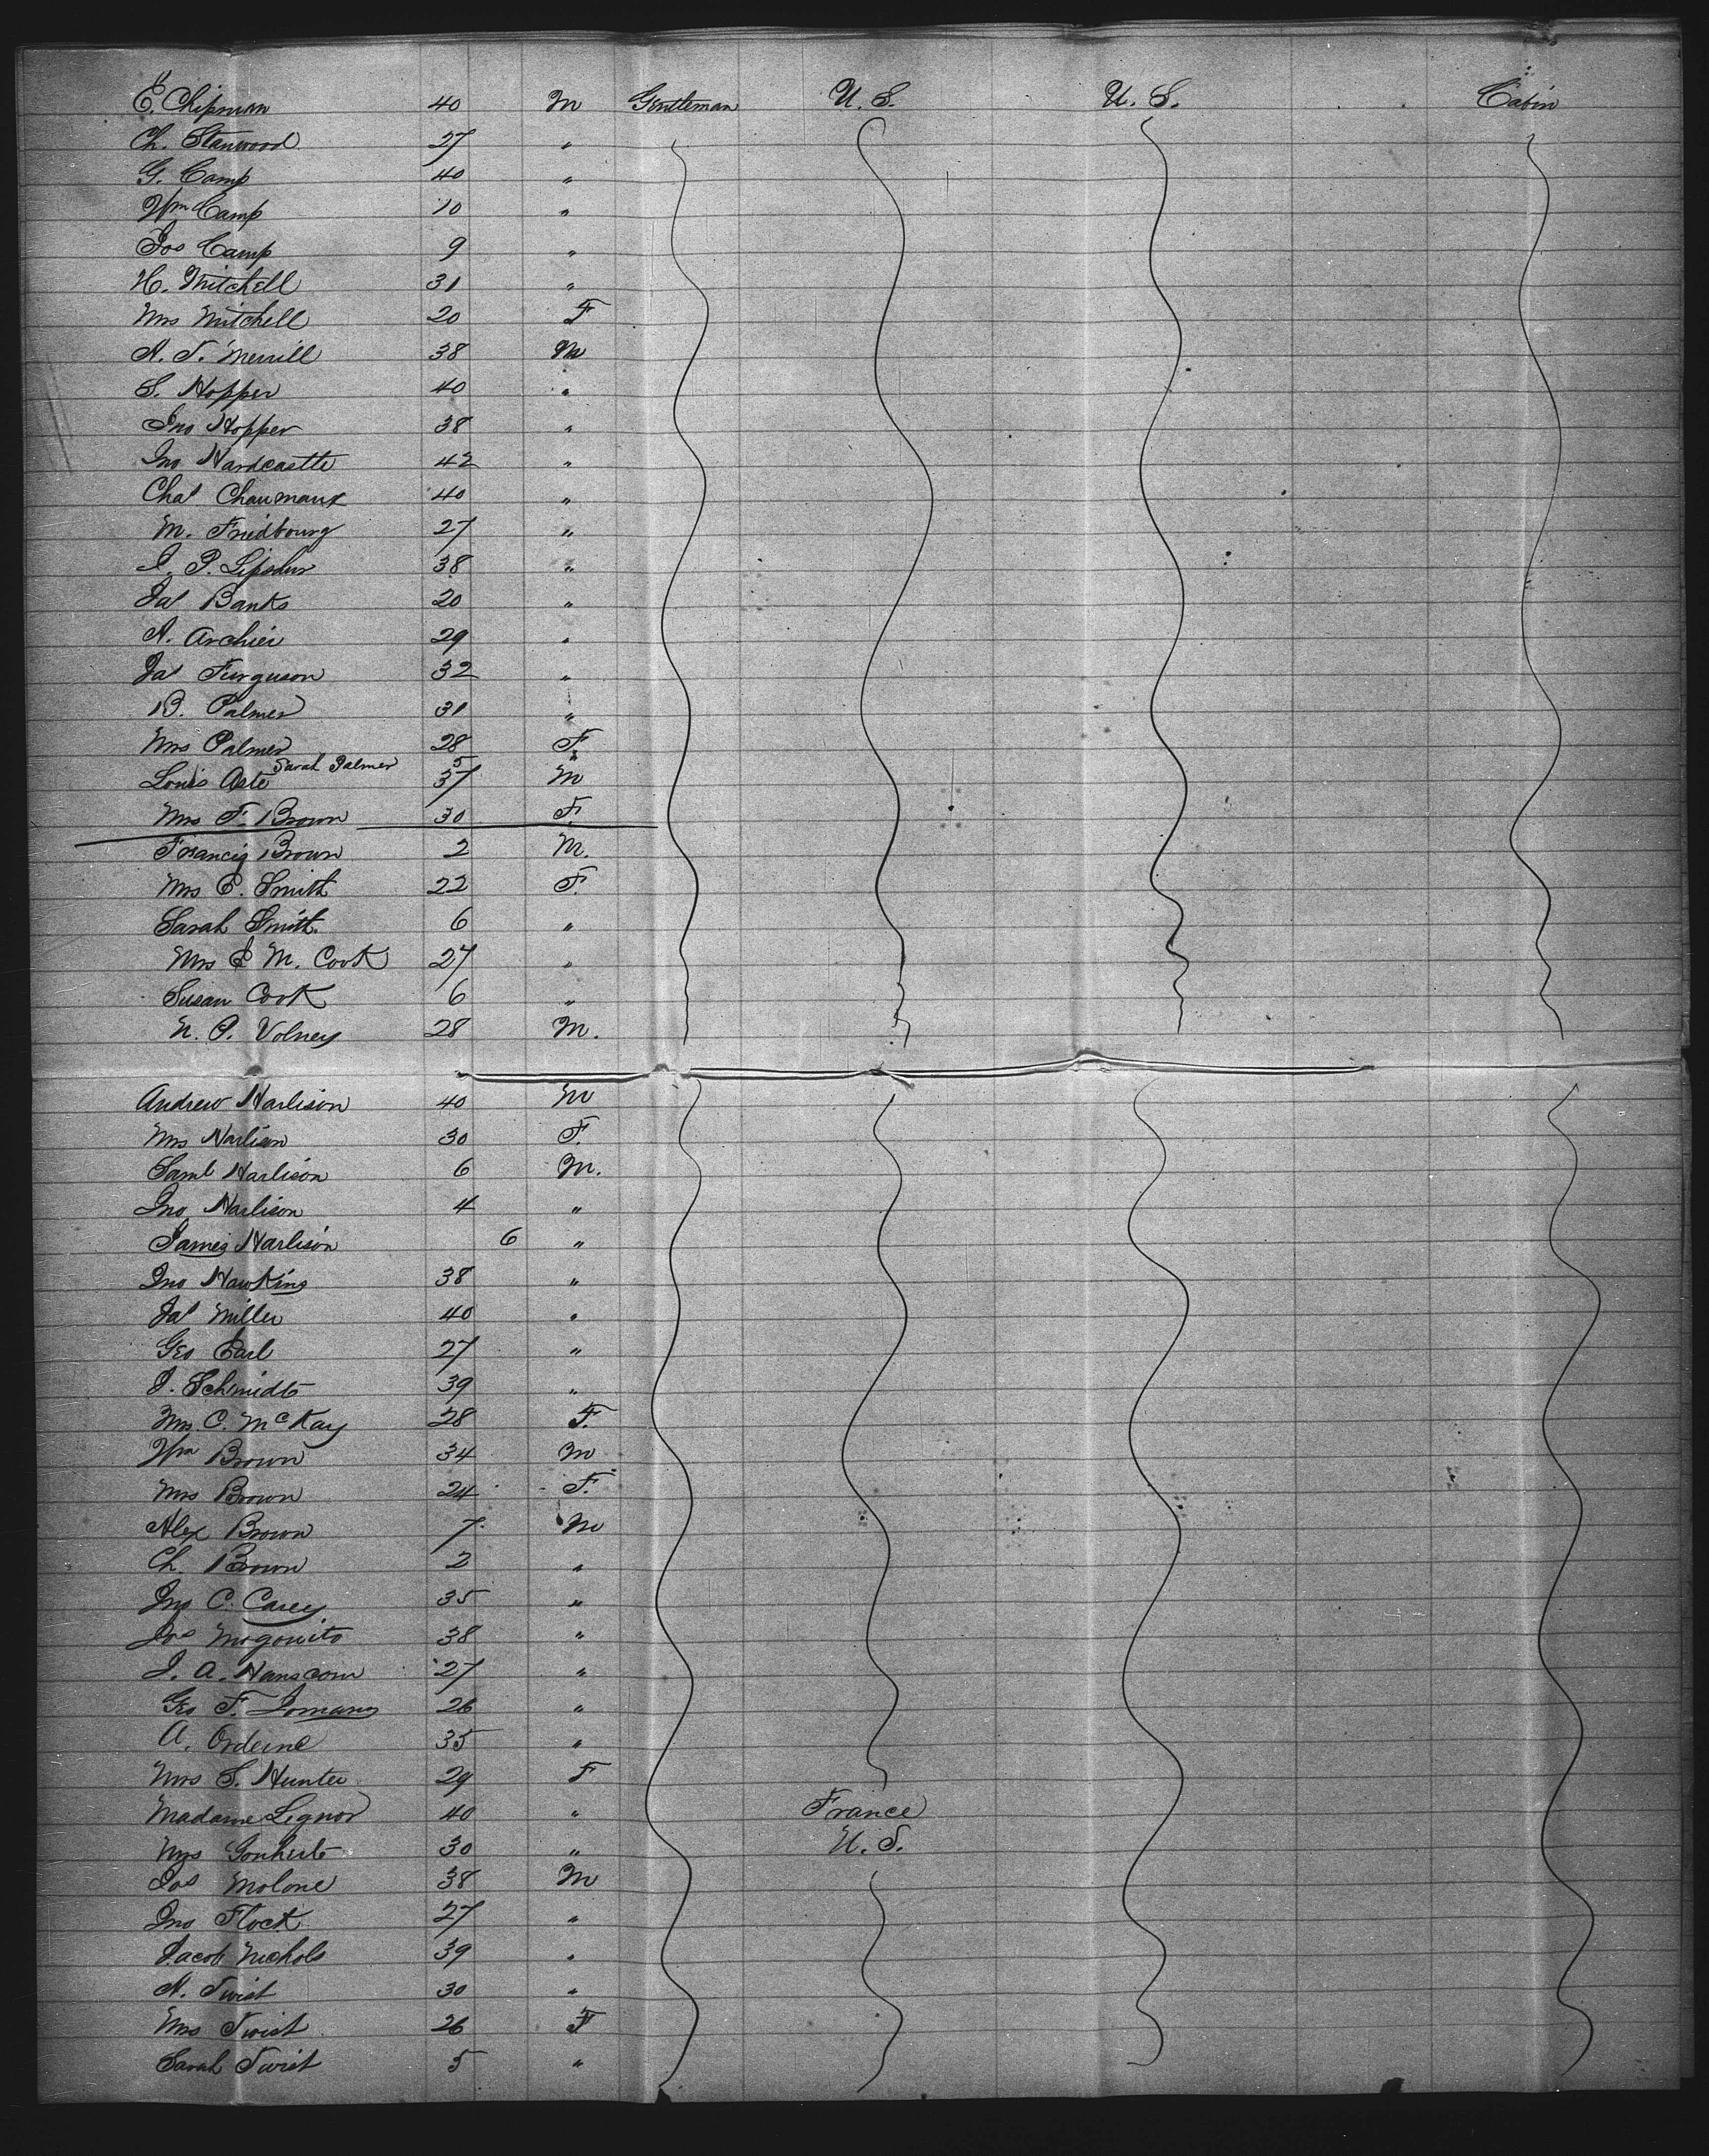 E. Chipman 40 M Gentleman U.S. U.S. Cabin
Ch. Stanwood 27 "
G. Camp 40 "
Wm Camp 10 "
Jos Camp 9 "
H. Mitchell 31 "
Mrs Mitchell 20 F
A. T. Merrill 38 M
S. Hopper 40 "
Jno Hopper 38 "
Jno Hardcastle 42 "
Chas Chaumaux 40 "
M. Friedbourg 27 "
J. P. 38 "
Jas Banks 20 "
A. Archier 29 "
Jas Furguson 32 "
B. Palmer 31 "
Mrs Palmer 28 F
Sarah Palmer 5 "
Louis Aste 37 M
Mrs F. Brown 30 F.
Francis Brown 2 M.
Mrs E. Smith 22 F.
Sarah Smith 6 "
Mrs E M. Cook 27 "
Susan Cook 6 "
N. P. Volney 28 M.
Andrew Harlison 40 M
Mrs Harlison 30 F.
Saml Harlison 6 M.
Jno Harlison 4 "
James Harlison 6 "
Jno Hawkins 38 "
Jas Miller 40 "
Geo Earl 27 "
J. Schmidt 39 "
Mrs C. McKay 28 F.
Wm Brown 34 M
Mrs Brown 24 F.
Alex Brown 7 M
Ch. Brown 2 "
Jno C. Carey 35 "
Jos 38 "
J. A. Hanscom 27 "
Geo F. 26 "
A. 35 "
Mrs S. Hunter 29 F
Madame Lignor 40 " France
Mrs 30 " U.S.
Jos Molone 38 M
Jno Flock 27 "
Jacob Nichols 39 "
A. Twist 30 "
Mrs Twist 26 F
Sarah Twist 5 "